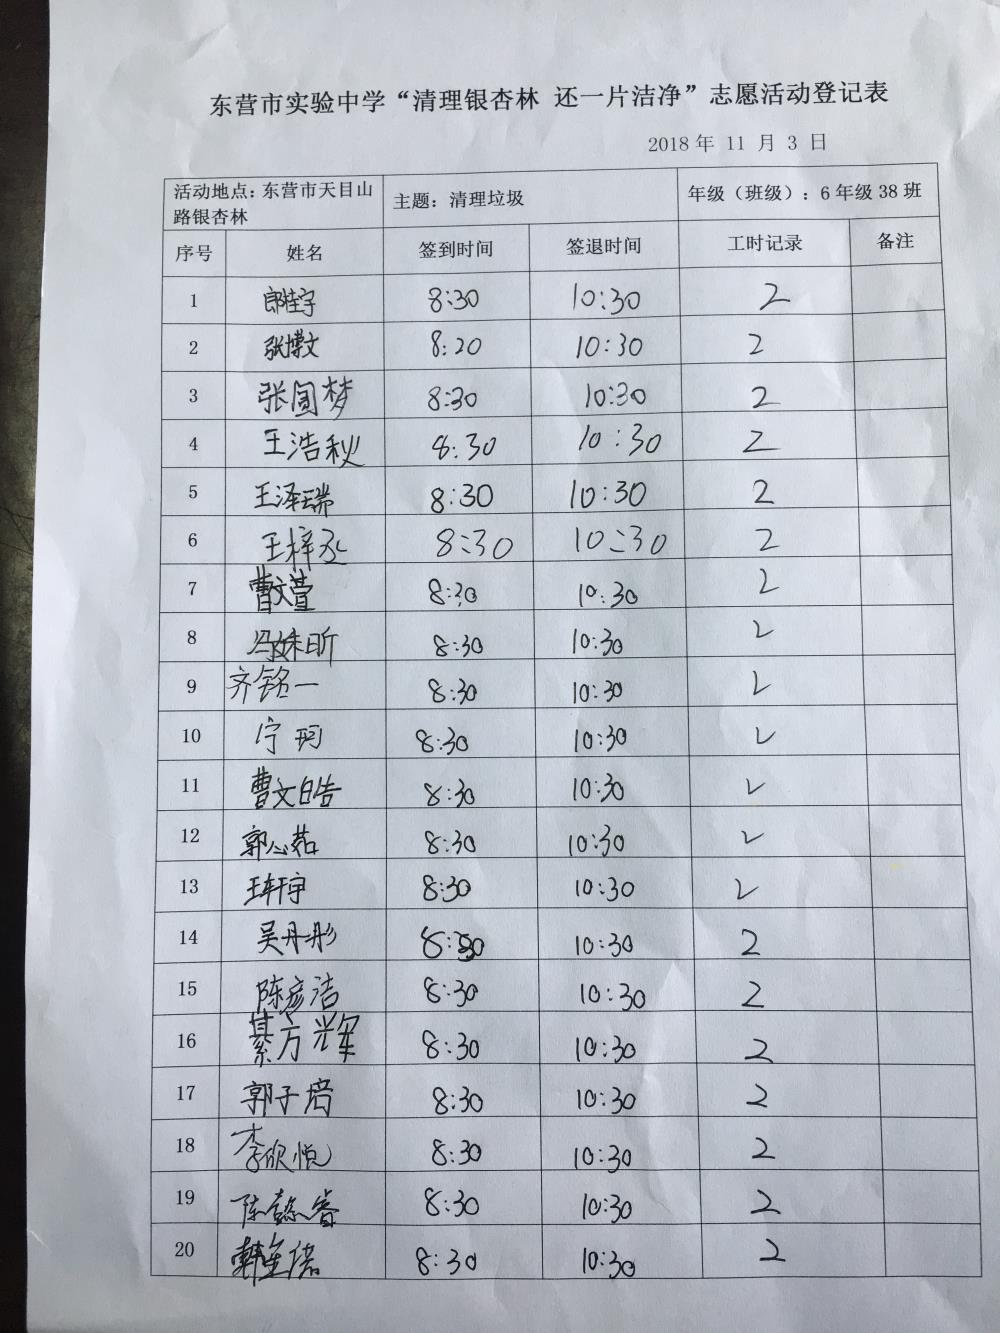 东营市实验中学“清理银杏林 还一片洁净”志愿活动登记表
2018 年 11 月 3 日
活动地点：东营市天目山路银杏林 主题：清理垃圾 年级（班级）：6 年级 38 班
序号 姓名 签到时间 签退时间 工时记录 备注
1 郎佳宇 8:30 10:30 2
2 张博文 8:20 10:30 2
3 张圆梦 8:30 10:30 2
4 王浩秋 8:30 10:30 2
5 王泽瑞 8:30 10:30 2
6 王梓丞 8:30 10:30 2
7 曹文萱 8:30 10:30 2
8 冯姝昕 8:30 10:30 2
9 齐铭一 8:30 10:30 2
10 宁珂 8:30 10:30 2
11 曹文皓 8:30 10:30 2
12 郭心茹 8:30 10:30 2
13 王轩宇 8:30 10:30 2
14 吴丹彤 8:30 10:30 2
15 陈彦洁 8:30 10:30 2
16 綦方辉 8:30 10:30 2
17 郭子培 8:30 10:30 2
18 李欣悦 8:30 10:30 2
19 陈懿睿 8:30 10:30 2
20 8:30 10:30 2